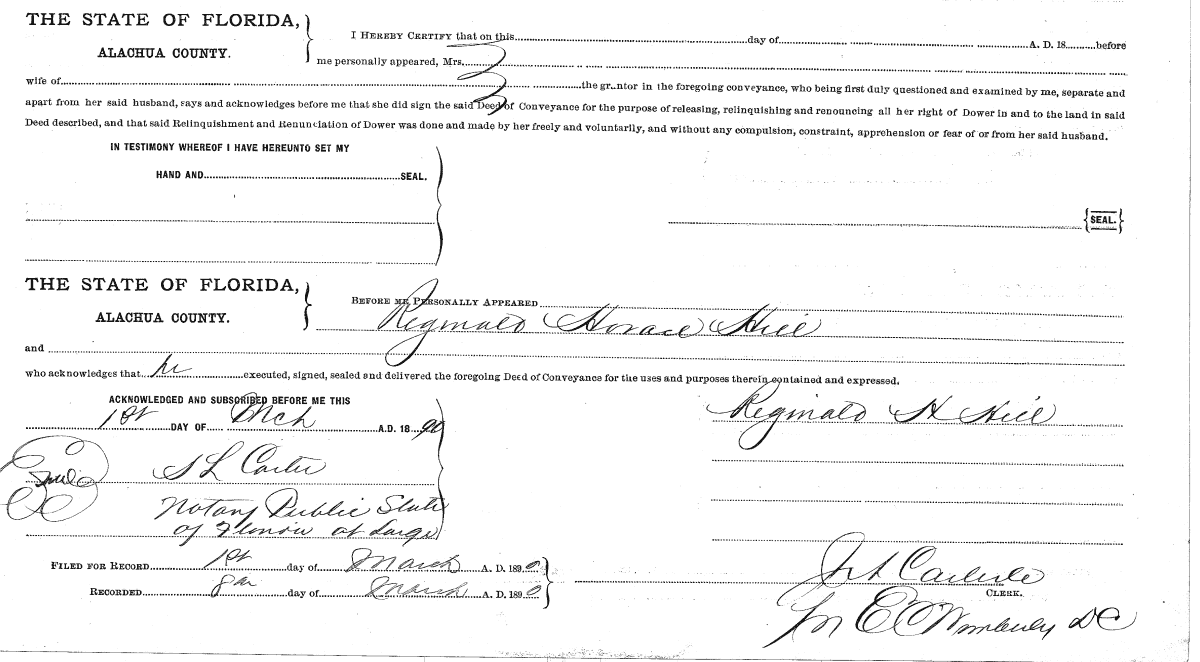 THE STATE OF FLORIDA,
ALACHUA COUNTY.
I HEREBY CERTIFY that on this............day of............A. D. 18........before
me personally appeared, Mrs.
wife of............the gr..ntor in the foregoing conveyance, who being first duly questioned and examined by me, separate and
apart from her said husband, says and acknowledges before me that she did sign the said Deed of Conveyance for the purpose of releasing, relinquishing and renouncing all her right of Dower in and to the land in said
Deed described, and that said Relinquishment and Renunciation of Dower was done and made by her freely and voluntarily, and without any compulsion, constraint, apprehension or fear of or from her said husband.
IN TESTIMONY WHEREOF I HAVE HEREUNTO SET MY
HAND AND............SEAL.
SEAL.
THE STATE OF FLORIDA,
ALACHUA COUNTY.
BEFORE ME PERSONALLY APPEARED
Reginald Horace Hill
and
who acknowledges that he executed, signed, sealed and delivered the foregoing Deed of Conveyance for the uses and purposes therein contained and expressed.
ACKNOWLEDGED AND SUBSCRIBED BEFORE ME THIS
1st DAY OF Mch A.D. 18 90
Reginald H Hill
S L Carter
Notary Public State
of Florida at Large
FILED FOR RECORD 1st day of March A. D. 1890
Carlisle
CLERK.
RECORDED 8th day of March A. D. 1890
E C Wimberly DC